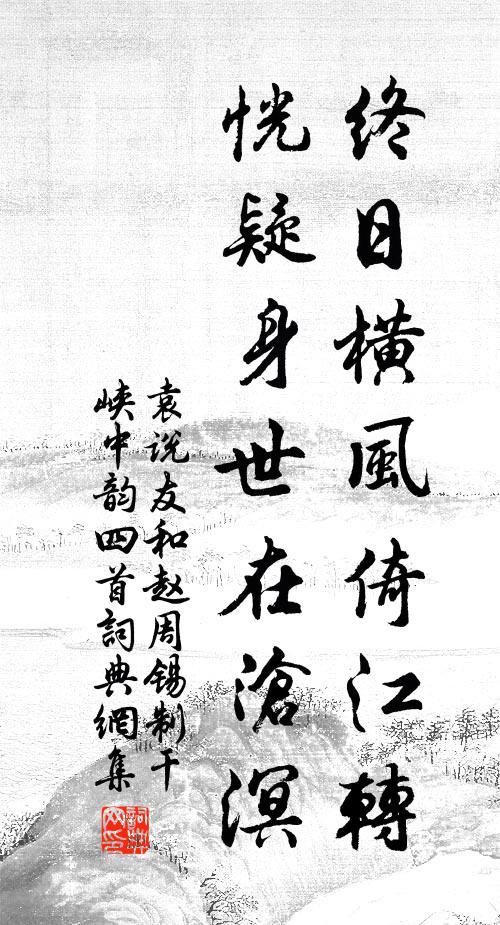 終日橫風倚江轉
恍疑身世在滄溟
袁说友和赵周锡制干
峡中韵四首詞典網集
詞典網印